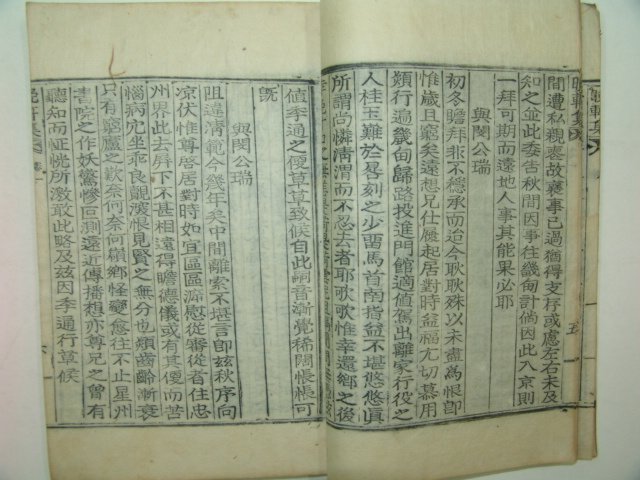 間遭私親喪故襄事已過猶得支存或慮左右未及
知之並此委告秋間因事徃畿甸計倘因此入京則
一拜可期而遠地人事其能果必耶
與閔公瑞
初冬贍拜非不穩承而迨今耿耿殊以未盡爲恨卽
惟歲且窮矣遠想兄仕履起居對時益福冗切慕用
類行遍畿甸歸路投進門館適値駕出離家行役之
人桂玉難於晷刻之少留馬首南指益不堪悠悠眞
所謂尚憐淸渭而不忍去者耶歌歌惟幸還鄕之後
値李通之便草草致候自此嗣音漸覺稀闊悵悵可
旣
與閔公瑞
阻違淸範今幾年矣中間離索不堪言卽玆秋序向
凉伏惟尊啓居對時如宜區區源慰從審從者住忠
州界此去屛下不甚相遠得瞻德儀或有其便而苦
惱病宂坐乖良覿滾恨見賢之無分也頹齒齡漸衰
只有窮廬之歎奈何奈何顧鄕怪變愈徃不止星州
書院之作妖驚慘叵測遠近傳播想亦尊兄之曾有
聽知而怔恍所激敢此略及玆因李通行草候